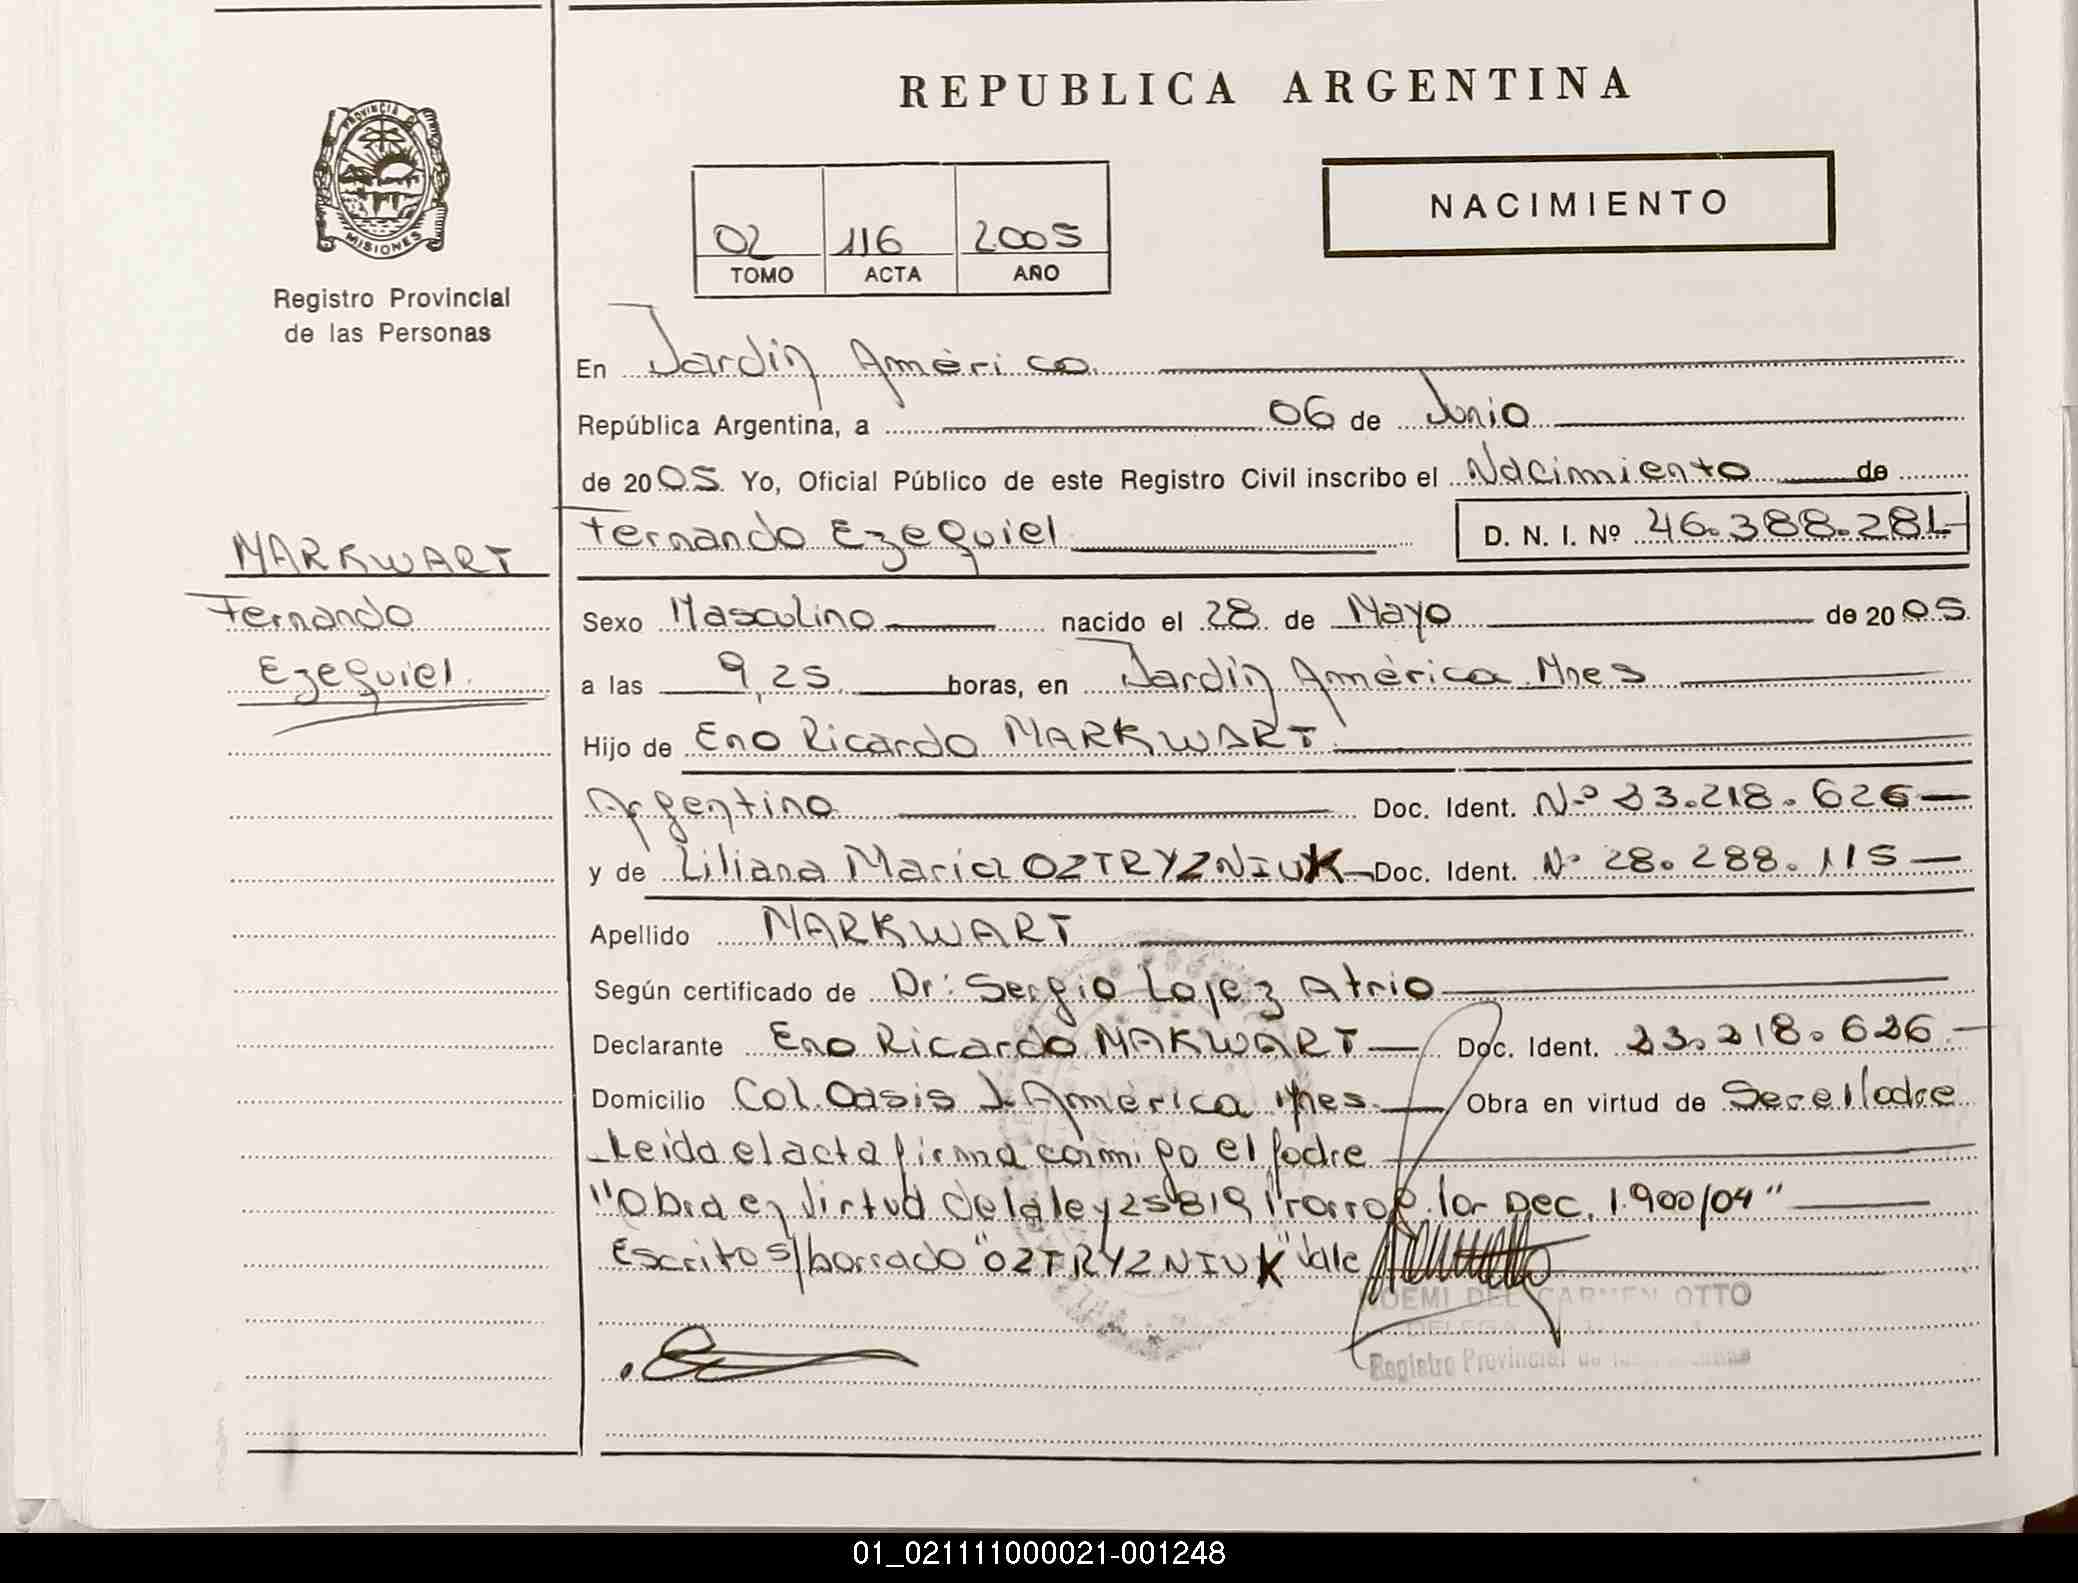 REPUBLICA ARGENTINA
PROVINCIA DE
MISIONES
Registro Provincial
de las Personas
02 116 2005
TOMO ACTA AÑO
NACIMIENTO
En Jardín América
República Argentina, a 06 de Junio
de 2005. Yo, Oficial Público de este Registro Civil inscribo el Nacimiento de
Fernando Ezequiel D. N. I. Nº 46.388.281
MARKWART
Fernando
Ezequiel.
Sexo Masculino nacido el 28 de Mayo de 2005
a las 9,25 horas, en Jardín América Mnes
Hijo de Eno Ricardo MARKWART
Argentino Doc. Ident. Nº 23.218.626
y de Liliana María OZTRYZNIUK Doc. Ident. Nº 28.288.115
Apellido MARKWART
Según certificado de Dr: Sergio Lopez Atrio
Declarante Eno Ricardo MAKWART Doc. Ident. 23.218.626
Domicilio Col. Oasis J. América Mnes. Obra en virtud de Ser el Padre
Leida el acta firma conmigo el padre
"Obra en Virtud de la ley 25819 Prorrog. por Dec. 1.900/04"
Escrito s/borrado "OZTRYZNIUK" Vale
NOEMI DEL CARMEN OTTO
Registro Provincial de las Personas
01_021111000021-001248